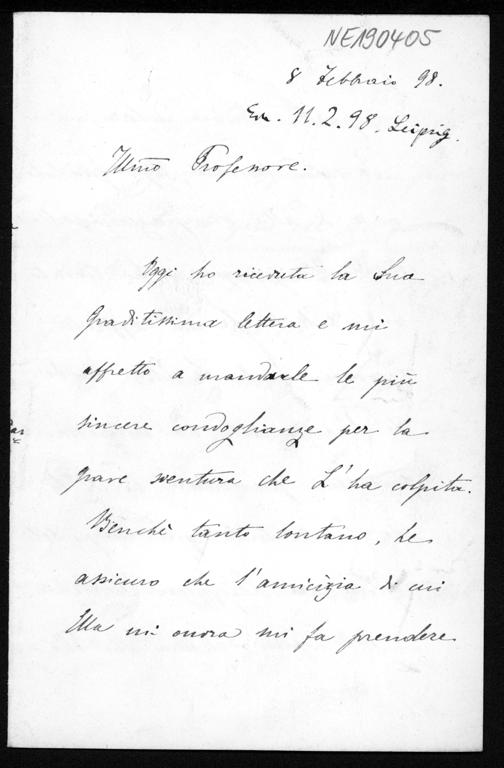 NE190405
8 Febbraio 98.
Erh. 11.2.98. Leipzig.
Illmo Professore.
Oggi ho ricevuta la Sua
graditissima lettera e mi
affretto a mandarle le più
sincere condoglianze per la
grave sventura che L'ha colpita.
Benchè tanto lontano, Le
assicuro che l'amicizia di cui
Ella mi onora mi fa prendere